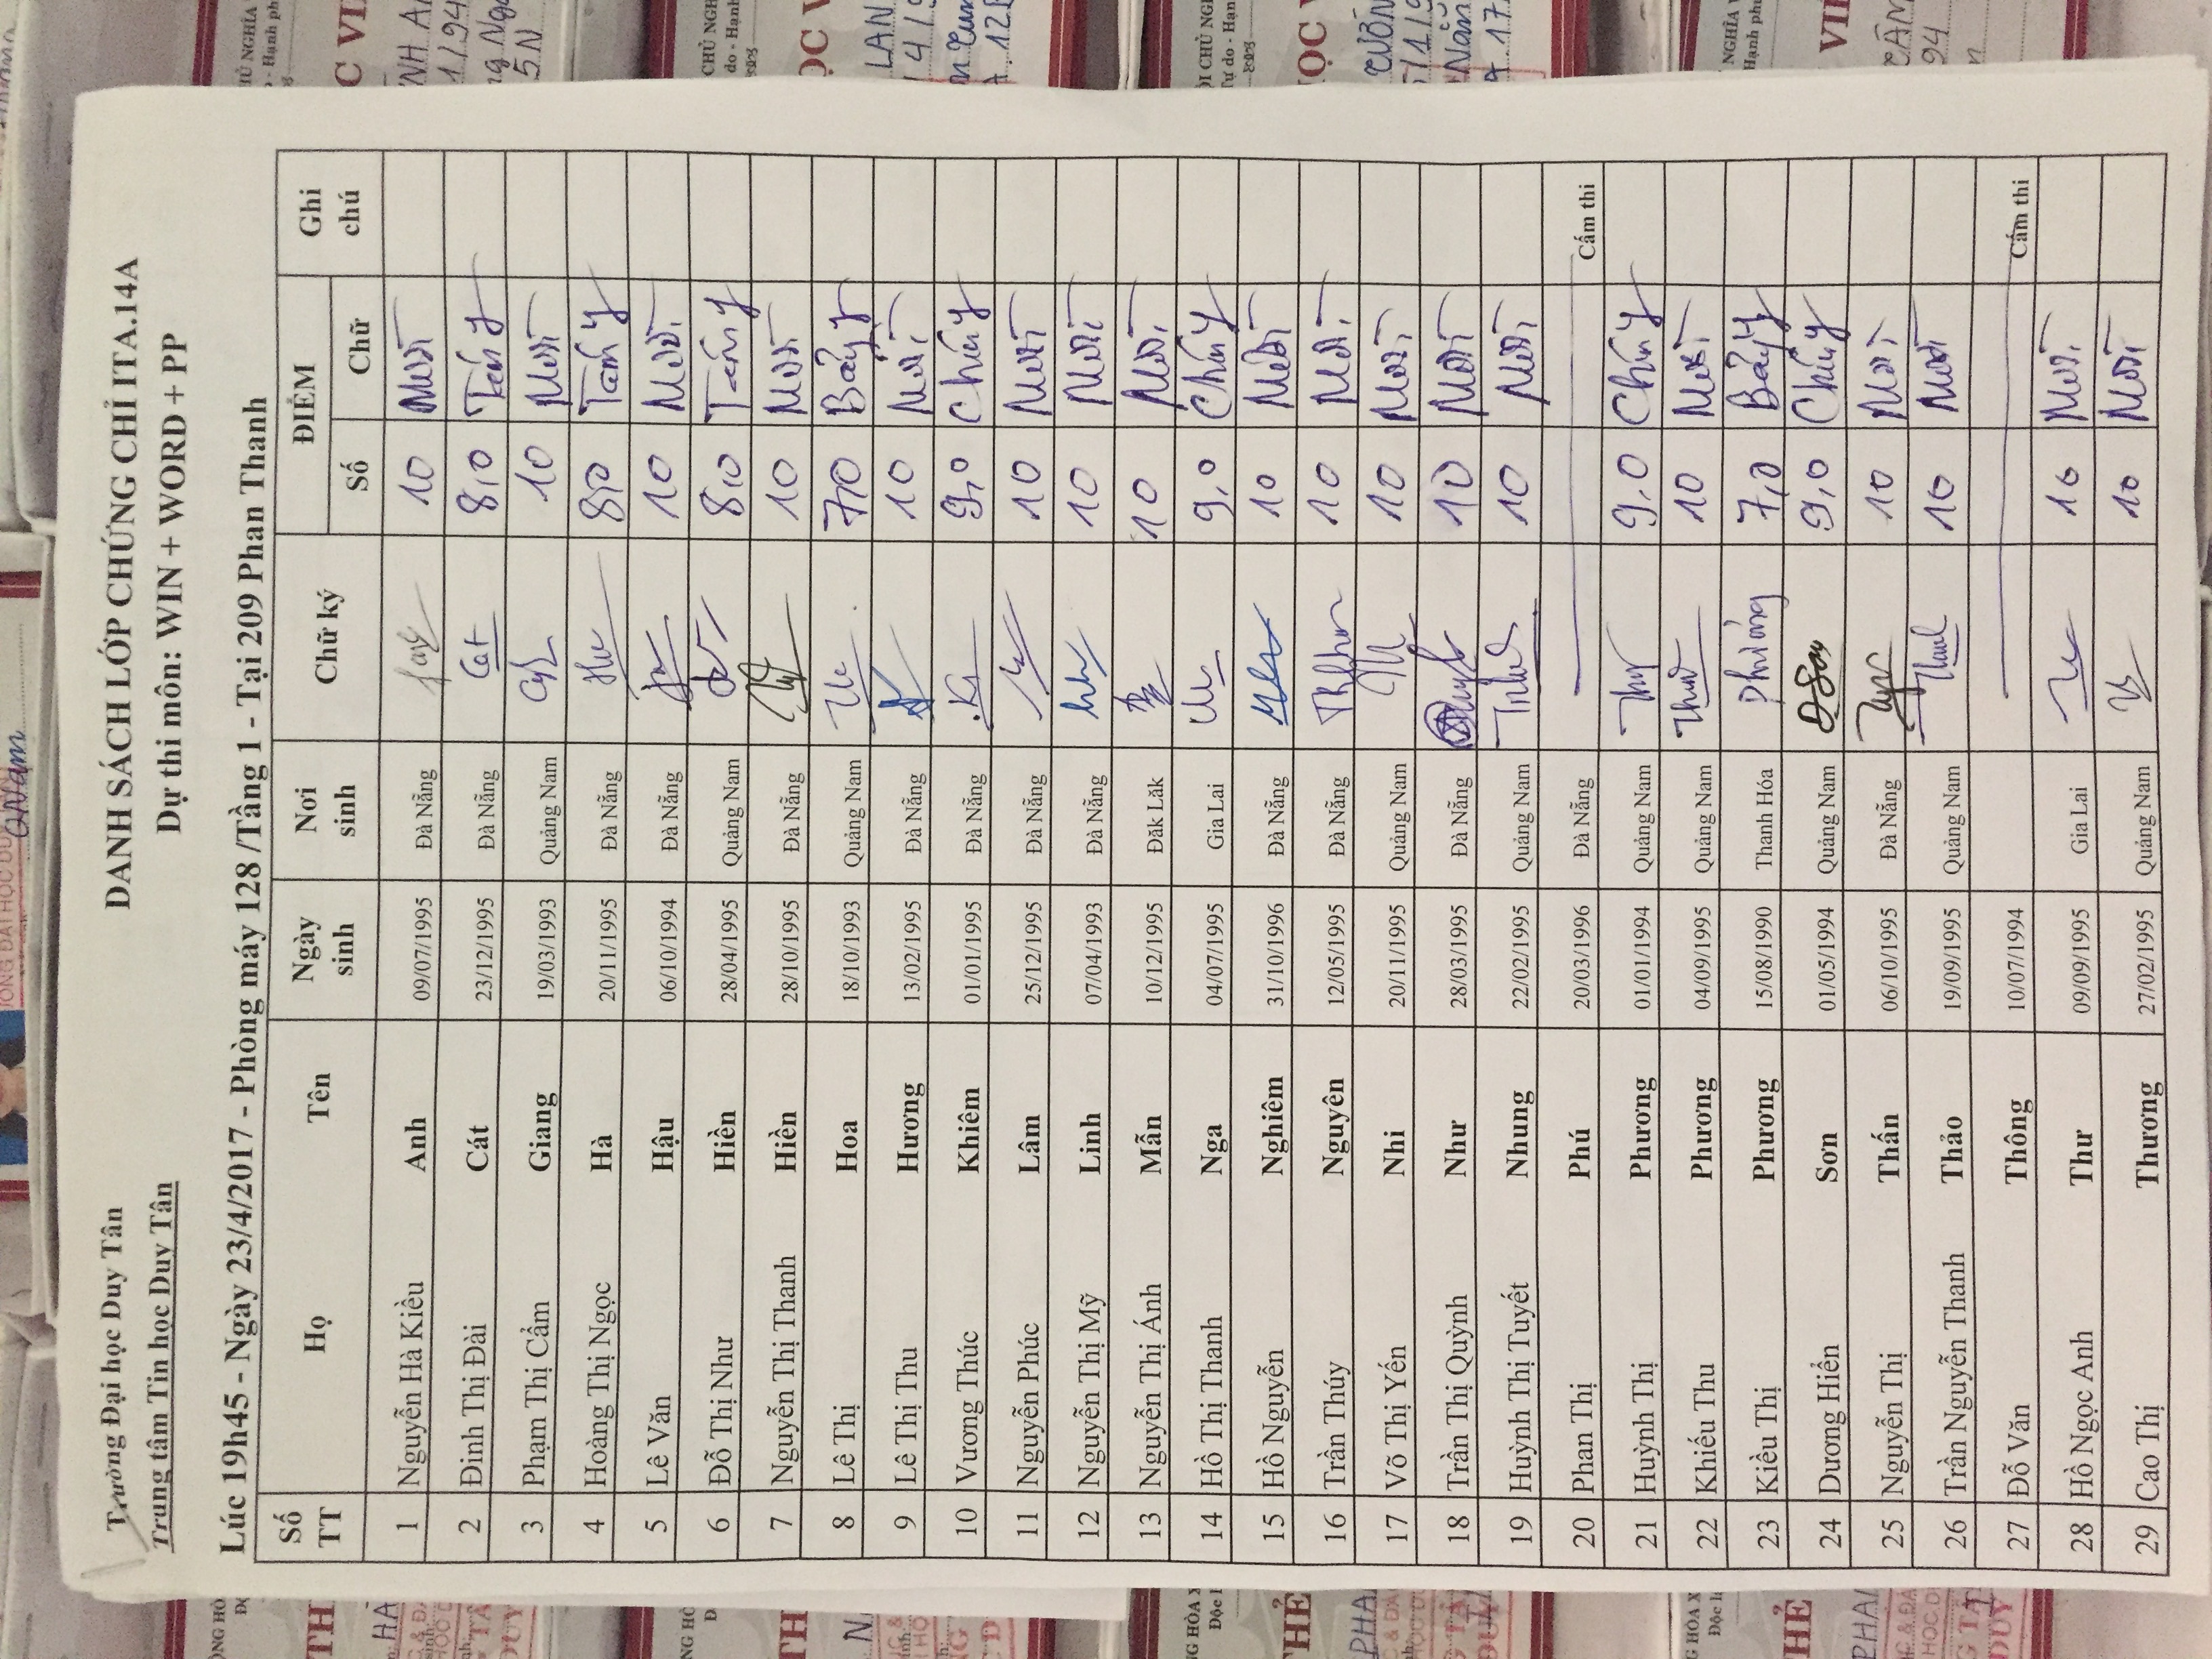 Trường Đại học Duy Tân
Trung tâm Tin học Duy Tân
DANH SÁCH LỚP CHỨNG CHỈ ITA.14A
Dự thi môn: WIN + WORD + PP
Lúc 19h45 - Ngày 23/4/2017 - Phòng máy 128 /Tầng 1 - Tại 209 Phan Thanh
Số TT Họ Tên Ngày sinh Nơi sinh Chữ ký ĐIỂM Số Chữ Ghi chú
1 Nguyễn Hà Kiều Anh 09/07/1995 Đà Nẵng 10 Mười
2 Đinh Thị Đài Cát 23/12/1995 Đà Nẵng Cat 8,0 Tám
3 Phạm Thị Cẩm Giang 19/03/1993 Quảng Nam 10 Mười
4 Hoàng Thị Ngọc Hà 20/11/1995 Đà Nẵng 8,0 Tám
5 Lê Văn Hậu 06/10/1994 Đà Nẵng 10 Mười
6 Đỗ Thị Như Hiền 28/04/1995 Quảng Nam 8,0 Tám
7 Nguyễn Thị Thanh Hiền 28/10/1995 Đà Nẵng 10 Mười
8 Lê Thị Hoa 18/10/1993 Quảng Nam 7,0 Bảy
9 Lê Thị Thu Hương 13/02/1995 Đà Nẵng 10 Mười
10 Vương Thúc Khiêm 01/01/1995 Đà Nẵng 9,0 Chín
11 Nguyễn Phúc Lâm 25/12/1995 Đà Nẵng 10 Mười
12 Nguyễn Thị Mỹ Linh 07/04/1993 Đà Nẵng 10 Mười
13 Nguyễn Thị Ánh Mẫn 10/12/1995 Đăk Lăk 10 Mười
14 Hồ Thị Thanh Nga 04/07/1995 Gia Lai 9,0 Chín
15 Hồ Nguyễn Nghiêm 31/10/1996 Đà Nẵng 10 Mười
16 Trần Thúy Nguyên 12/05/1995 Đà Nẵng 10 Mười
17 Võ Thị Yến Nhi 20/11/1995 Quảng Nam 10 Mười
18 Trần Thị Quỳnh Như 28/03/1995 Đà Nẵng 10 Mười
19 Huỳnh Thị Tuyết Nhung 22/02/1995 Quảng Nam 10 Mười
20 Phan Thị Phú 20/03/1996 Đà Nẵng Cấm thi
21 Huỳnh Thị Phương 01/01/1994 Quảng Nam 9,0 Chín
22 Khiếu Thu Phương 04/09/1995 Quảng Nam 10 Mười
23 Kiều Thị Phượng 15/08/1990 Thanh Hóa 7,0 Bảy
24 Dương Hiển Sơn 01/05/1994 Quảng Nam 9,0 Chín
25 Nguyễn Thị Thấn 06/10/1995 Đà Nẵng 10 Mười
26 Trần Nguyễn Thanh Thảo 19/09/1995 Quảng Nam 10 Mười
27 Đỗ Văn Thông 10/07/1994 Cấm thi
28 Hồ Ngọc Anh Thư 09/09/1995 Gia Lai 10 Mười
29 Cao Thị Thương 27/02/1995 Quảng Nam 10 Mười